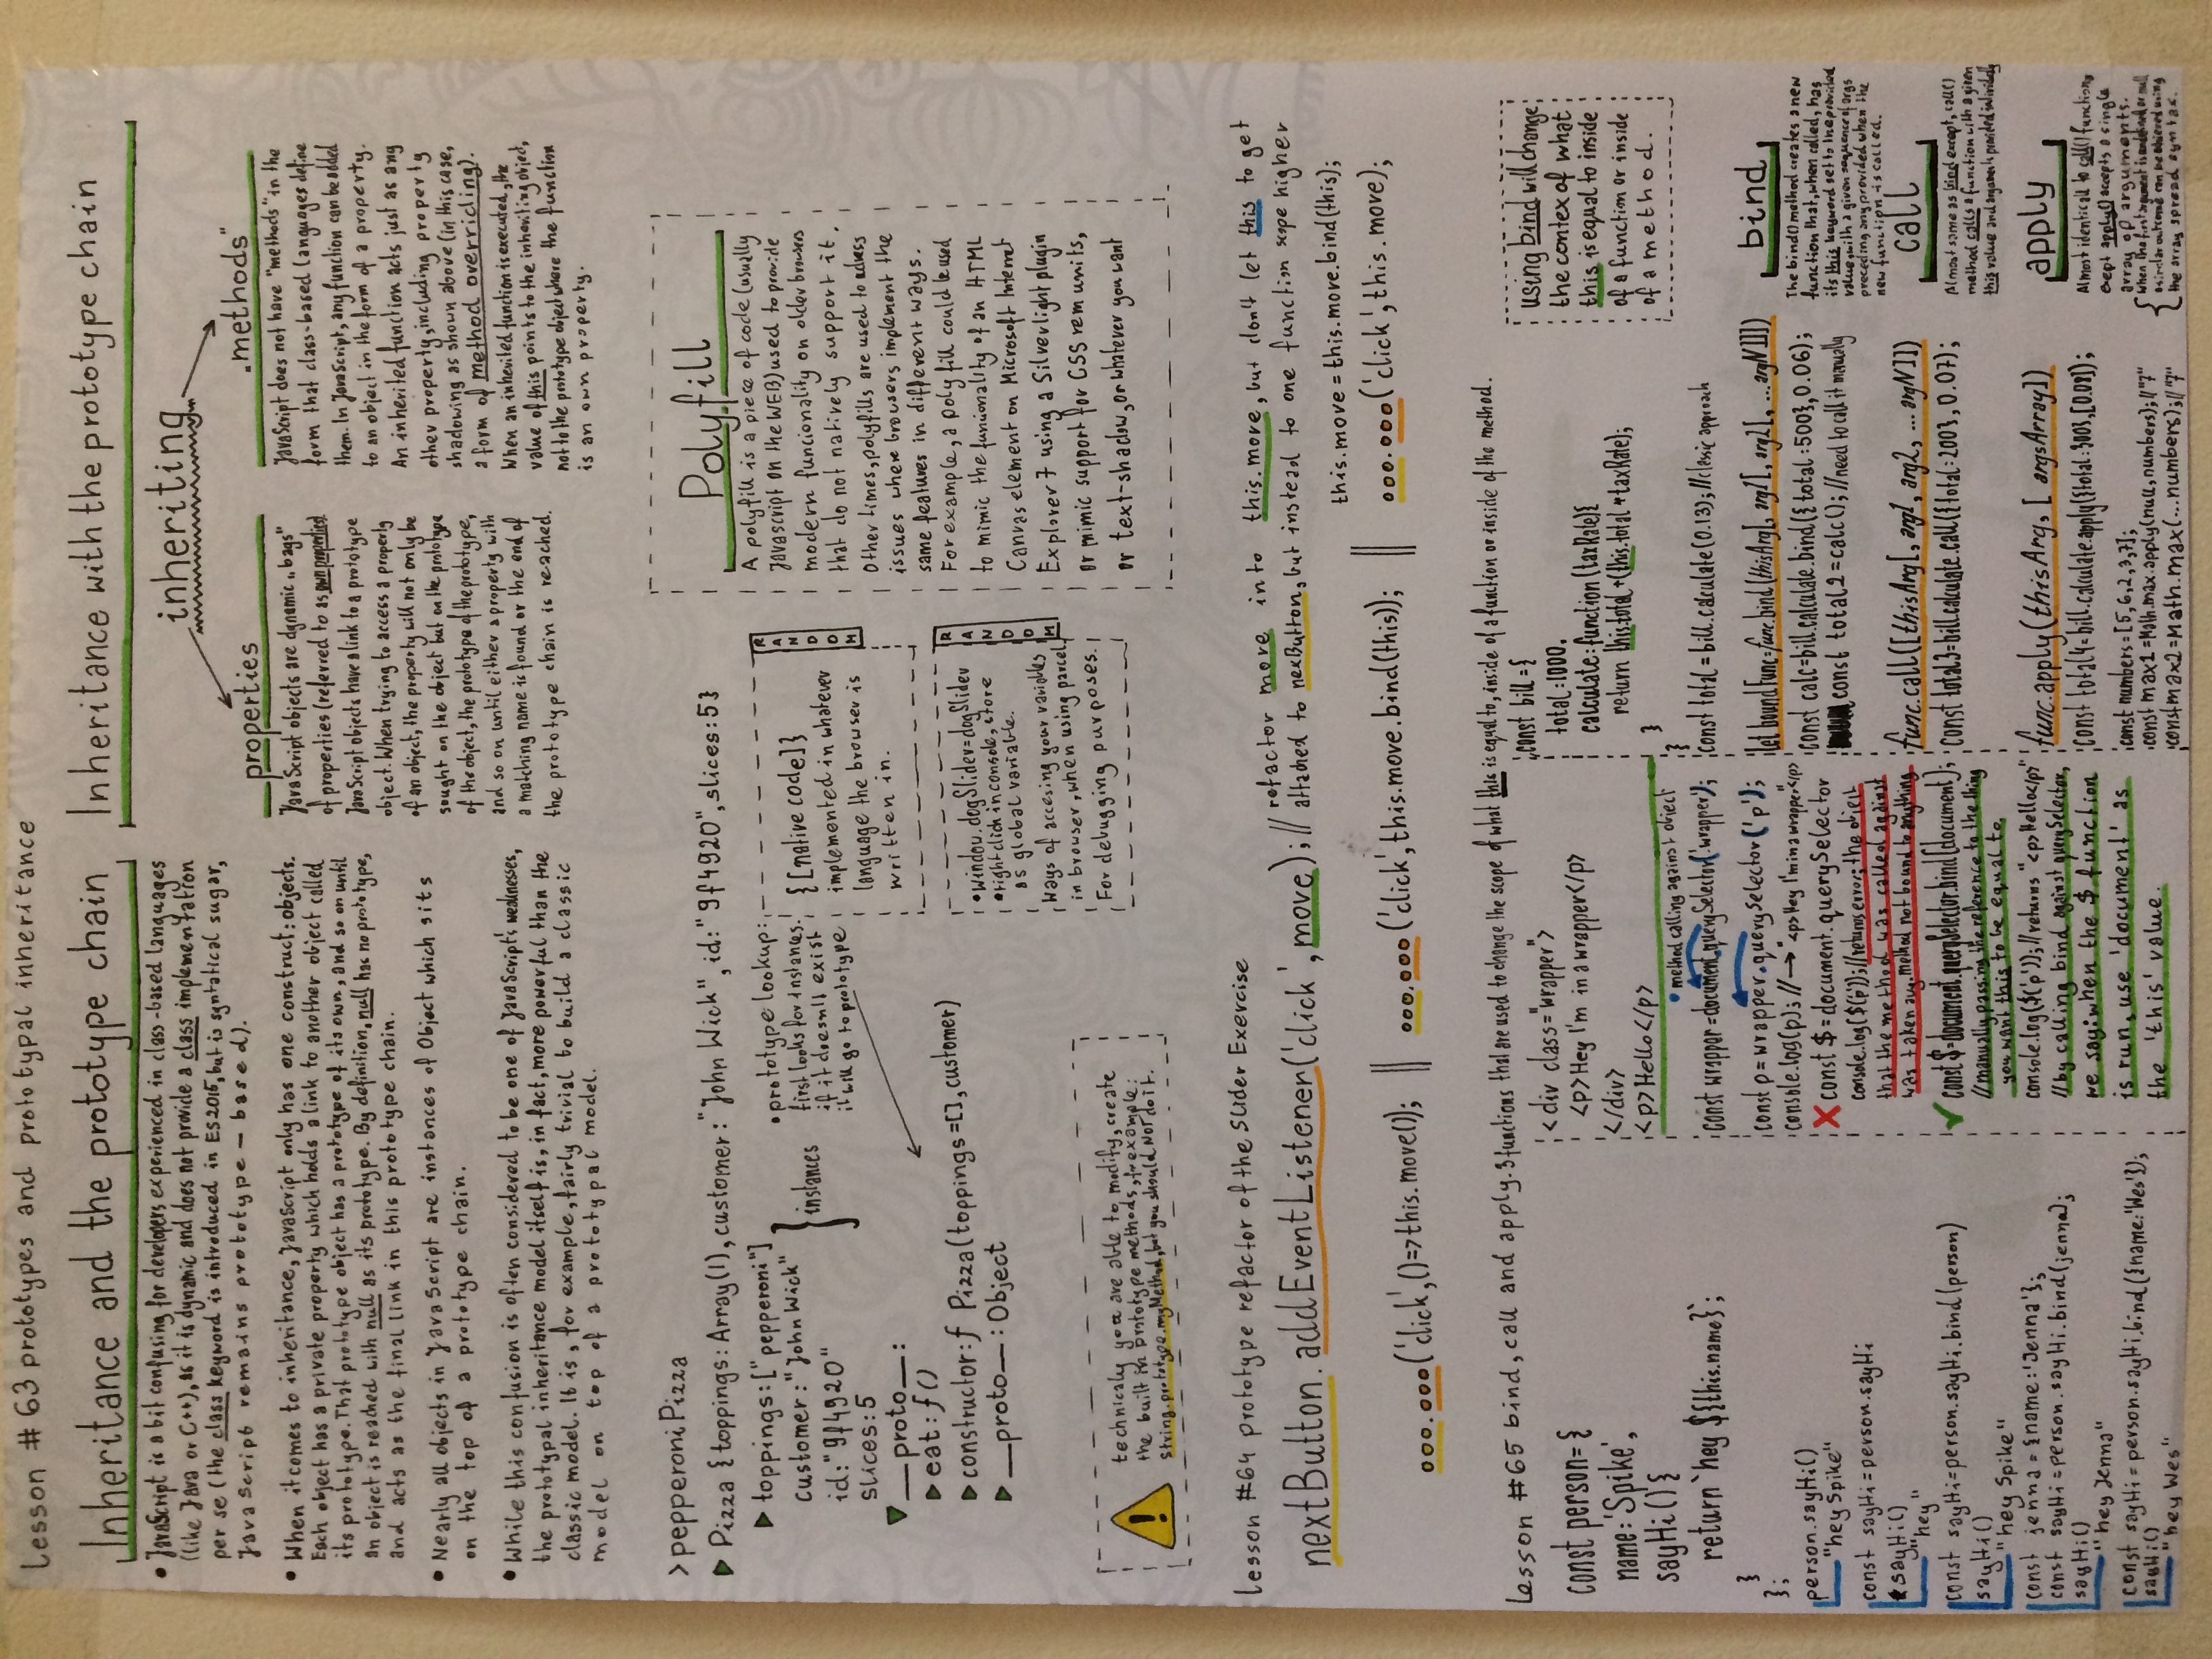 Lesson # 63 prototypes and prototypal inheritance
Inheritance and the prototype chain
• JavaScript is a bit confusing for developers experienced in class-based languages
(like Java or C++), as it is dynamic and does not provide a class implementation
per se (the class keyword is introduced in ES2015, but is syntatical sugar,
JavaScript remains prototype - based).
• When it comes to inheritance, JavaScript only has one construct: objects.
Each object has a private property which holds a link to another object called
its prototype. That prototype object has a prototype of its own, and so on until
an object is reached with null as its prototype. By definition, null has no prototype,
and acts as the final link in this prototype chain.
• Nearly all objects in JavaScript are instances of Object which sits
on the top of a prototype chain.
• While this confusion is often considered to be one of JavaScript's weaknesses,
the prototypal inheritance model itself is, in fact, more powerful than the
classic model. It is, for example, fairly trivial to build a classic
model on top of a prototypal model.
Inheritance with the prototype chain
inheriting
properties
JavaScript objects are dynamic „bags"
of properties (referred to as own properties)
JavaScript objects have a link to a prototype
object. When trying to access a property
of an object, the property will not only be
sought on the object but on the prototype
of the object, the prototype of the prototype,
and so on until either a property with
a matching name is found or the end of
the prototype chain is reached.
„methods"
JavaScript does not have "methods" in the
form that class-based languages define
them. In JavaScript, any function can be added
to an object in the form of a property.
An inherited function acts just as any
other property, including property
shadowing as shown above (in this case,
a form of method overriding).
When an inherited function is executed, the
value of this points to the inheriting object,
not to the prototype object where the function
is an own property.
> pepperoniPizza
Pizza {toppings: Array(1), customer: "John Wick", id: "9f4920", slices: 5}
toppings: ["pepperoni"]
customer: "John Wick"
id: "9f4920"
slices: 5
instances
__proto__:
eat: ƒ()
constructor: ƒ Pizza(toppings=[], customer)
__proto__: Object
• prototype lookup:
first looks for instances.
if it doesn't exist
it will go to prototype
{[native code]}
implemented in whatever
language the browser is
written in.
RANDOM
• window.dogSlider=dogSlider
• right click in console, store
as global variable.
Ways of accesing your variables
in browser, when using parcel.
For debugging purposes.
RANDOM
Polyfill
A polyfill is a piece of code (usually
Javascript on the WEB) used to provide
modern funcionality on older browsers
that do not natively support it.
Other times, polyfills are used to adress
issues where browsers implement the
same features in different ways.
For example, a poly fill could be used
to mimic the funcionality of an HTML
Canvas element on Microsoft Internet
Explorer 7 using a Silverlight plugin
or mimic support for CSS rem units,
or text-shadow, or whatever you want
!
technicaly you are able to modify, create
the built in prototype methods, for example:
String.prototype.myMethod, but you should NOT do it.
Lesson #64 prototype refactor of the Slider Exercise
nextButton.addEventListener('click', move); //
refactor move into this.move, but don't let this to get
attached to nexButton, but instead to one function scope higher
ooo.ooo('click',()=>this.move());
||
ooo.ooo('click',this.move.bind(this));
||
this.move = this.move.bind(this);
ooo.ooo('click',this.move);
Lesson #65 bind, call and apply. 3 functions that are used to change the scope of what this is equal to, inside of a function or inside of the method.
const person= {
name: 'Spike',
sayHi(){
return `hey ${this.name}`;
}
};
person.sayHi()
"hey Spike"
const sayHi=person.sayHi
sayHi()
"hey"
const sayHi=person.sayHi.bind(person)
sayHi()
"hey Spike"
const jenna = {name:'Jenna'};
const sayHi=person.sayHi.bind(jenna);
sayHi()
"hey Jenna"
const sayHi=person.sayHi.bind({name:'Wes'});
sayHi()
"hey Wes"
<div class="wrapper">
<p>Hey I'm in a wrapper</p>
</div>
<p>Hello</p>
• method calling against object
const wrapper=document.querySelector('.wrapper');
const p=wrapper.querySelector('p');
console.log(p); // → "<p>Hey I'm in a wrapper"</p>
const $=document.querySelector
console.log($('p')); //returns error; the object
that the method was called against
was taken away. method not bound to anything
const $=document.querySelector.bind(document);
//manually passing the reference to the thing
you want this to be equal to.
console.log($('p')); //returns "<p>Hello</p>"
//by calling bind against querySelector,
we say: when the $ function
is run, use 'document' as
the 'this' value.
const bill={
total:1000,
calculate:function(taxRate){
return this.total +(this.total *taxRate);
}
}
const total = bill.calculate(0.13); //classic approach
let boundFunc=func.bind(thisArg[, arg1[, arg2[, ...argN]]])
const calc=bill.calculate.bind({total:500},0.06);
const total2=calc(); //need to call it manually
func.call([thisArg[, arg1, arg2, ... argN]])
const total3=bill.calculate.call({total:200}, 0.07);
func.apply(thisArg, [ argsArray])
const total4=bill.calculate.apply({total:300},[0.08]);
const numbers=[5,6,2,3,7];
const max1=Math.max.apply(null,numbers); //"7"
const max2=Math.max(...numbers); //"7"
using bind will change
the contex of what
this is equal to inside
of a function or inside
of a method.
bind
The bind() method creates a new
function that, when called, has
its this keyword set to the provided
value, with a given sequence of args
preceding any provided when the
new function is called.
call
Almost same as bind except, call()
method calls a function with a given
this value and arguments provided individually
apply
Almost identicall to call() function,
exept apply() accepts a single
array of arguments.
When the first argument is undefined or null
a similar outcome can be achieved using
the array spread syntax.